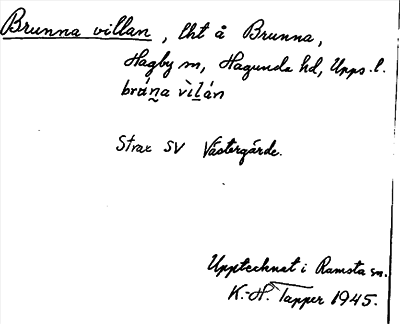 Brunna villan, lht å Brunna,
Hagby sn, Hagunda hd, Upps. l.
brána vìlán
Strax SV Västergårde.
Upptecknat i Ramsta sn.
K.-H. Tapper 1945.